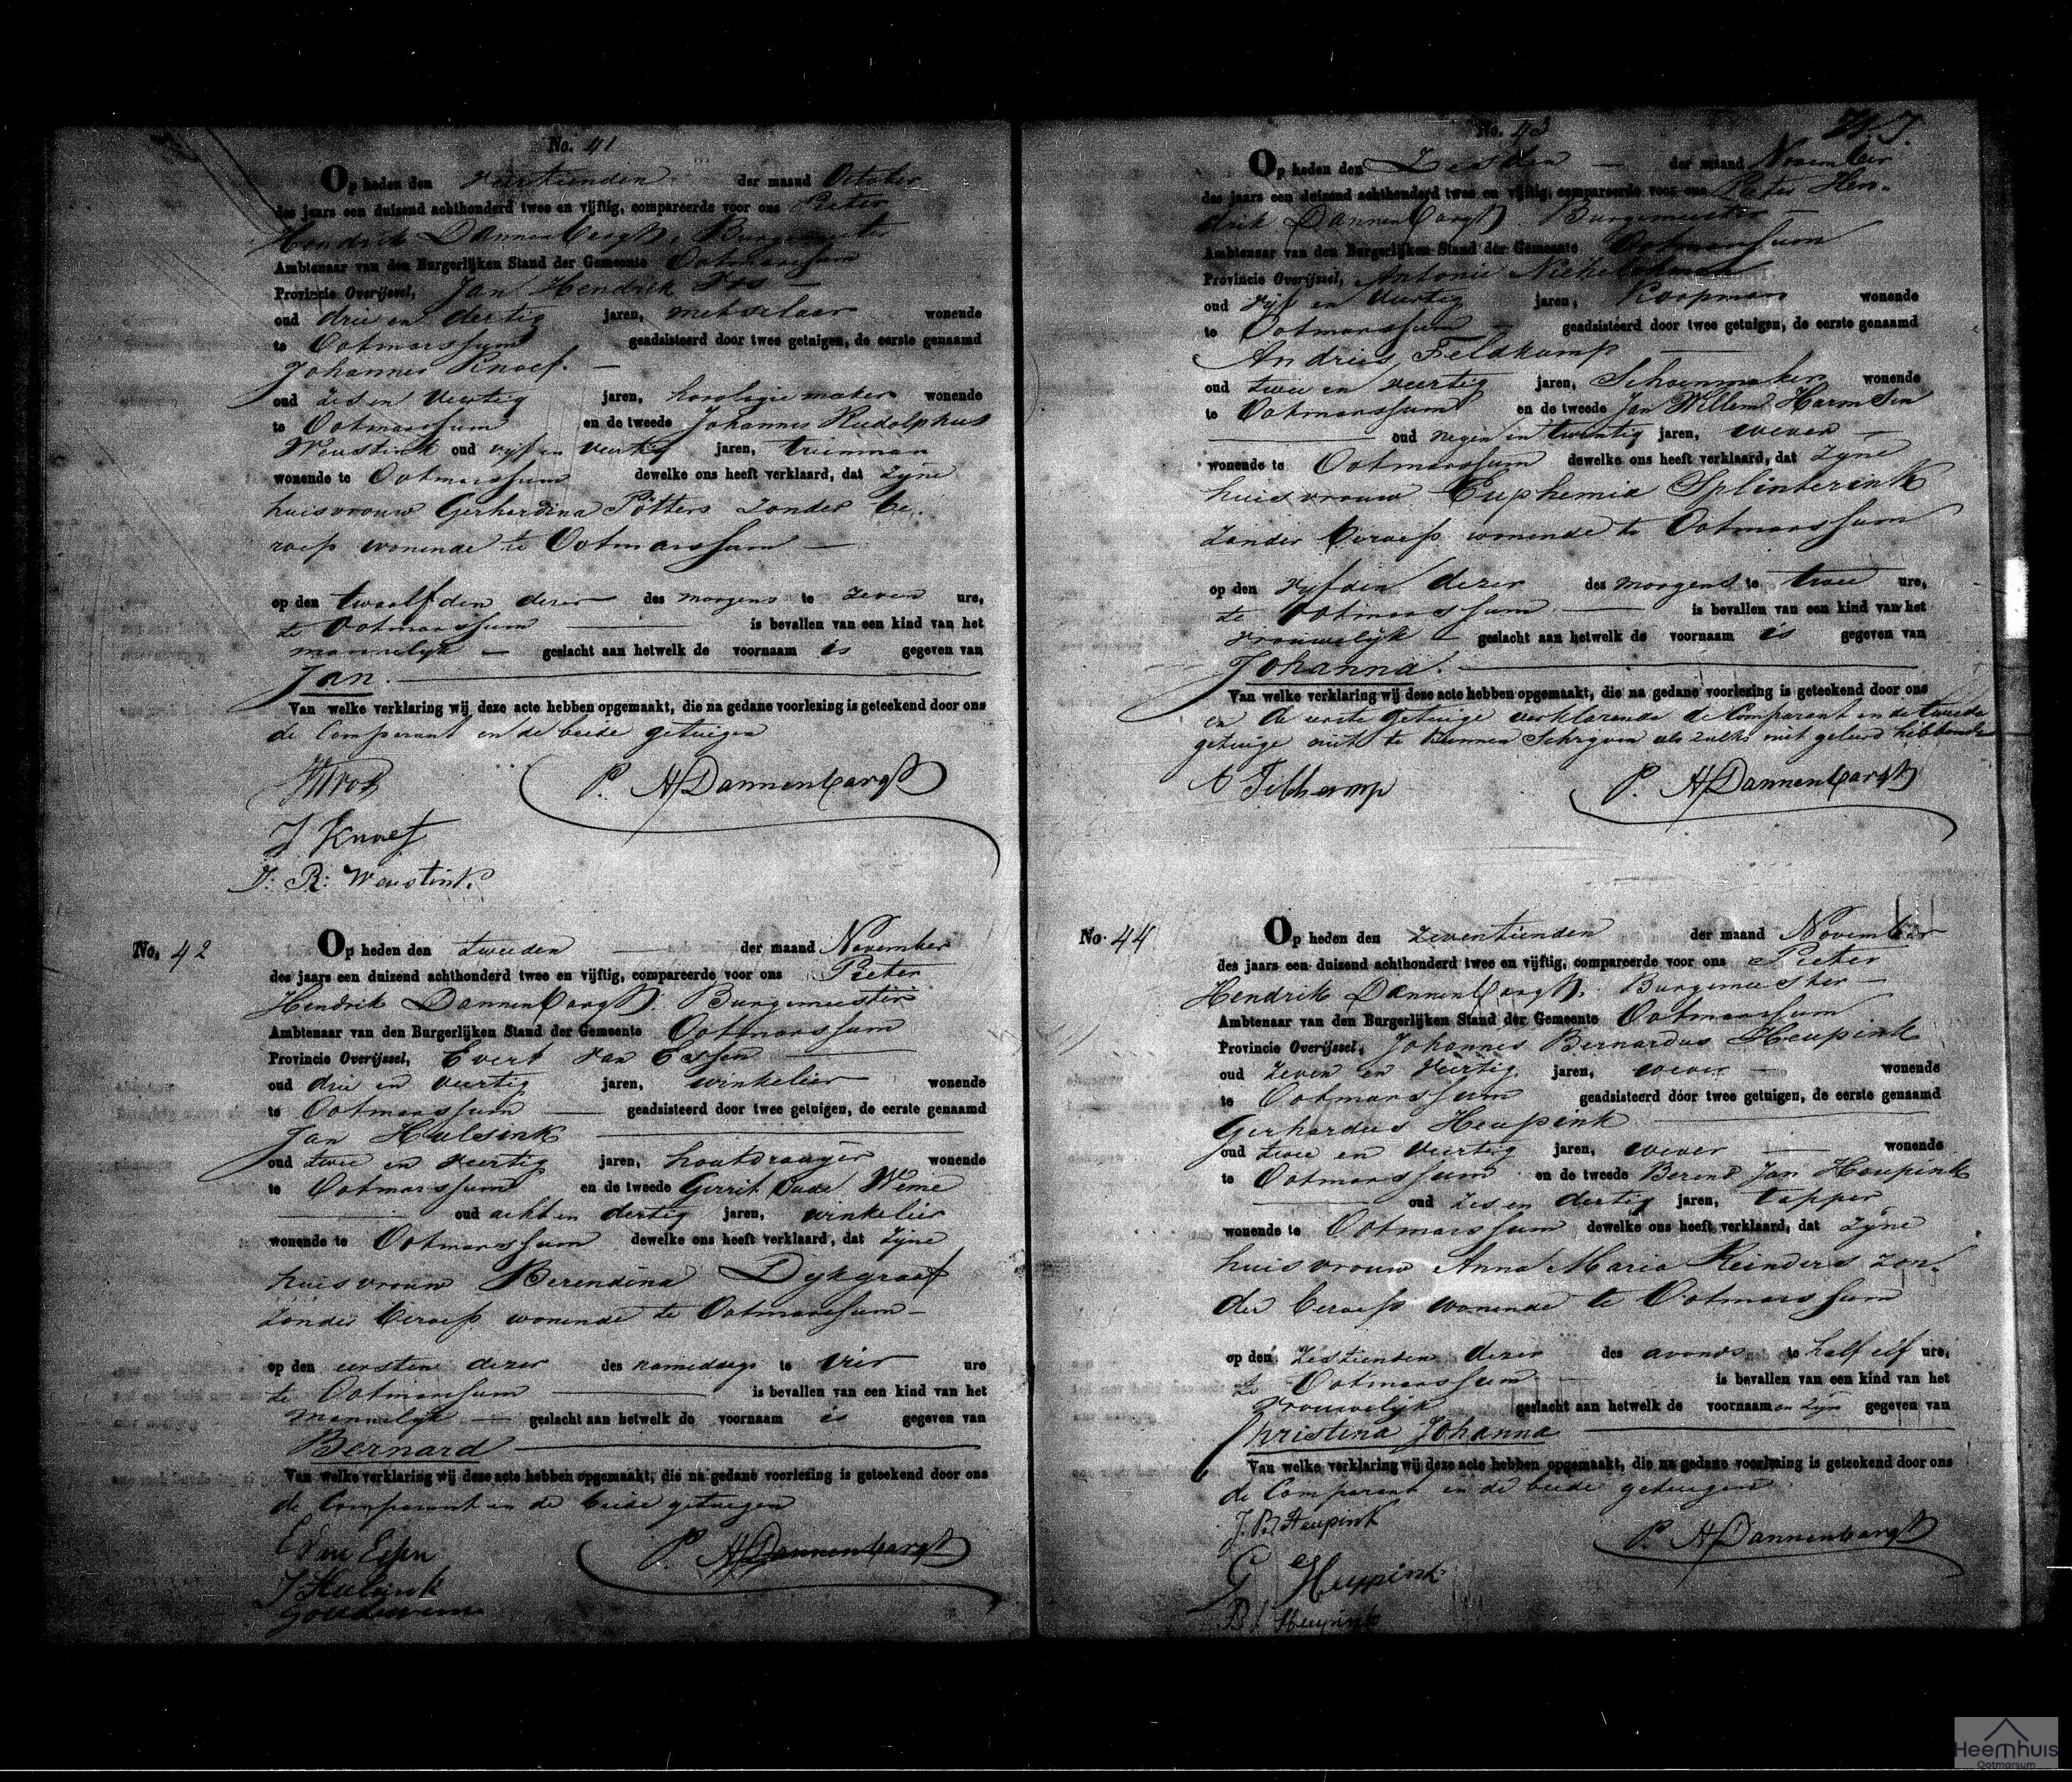 No. 41
Op heden den veertienden der maand October
des jaars een duizend achthonderd twee en vijftig, compareerde voor ons Pieter
Hendrik Dannenbargh, Burgemeester
Ambtenaar van den Burgerlijken Stand der Gemeente Ootmarssum
Provincie Overijssel, Jan Hendrik Vos
oud drie en dertig jaren, metselaar wonende
te Ootmarssum geadsisteerd door twee getuigen, de eerste genaamd
Johannes Knoef.
oud zes en veertig jaren, horologiemaker wonende
te Ootmarssum en de tweede Johannes Rudolphus
Weustink oud vijf en veertig jaren, tuinman
wonende te Ootmarssum dewelke ons heeft verklaard, dat zyne
huisvrouw Gerhardina Pötters zonder be-
roep wonende te Ootmarssum
op den twaalfden dezer des morgens te zeven ure,
te Ootmarssum is bevallen van een kind van het
mannelyk geslacht aan hetwelk de voornaam is gegeven van
Jan.
Van welke verklaring wij deze acte hebben opgemaakt, die na gedane voorlezing is geteekend door ons
de Comparant en de beide getuigen
P. H Dannenbargh
J Knoef
J: R: Weustink.
No. 42
Op heden den tweeden der maand November
des jaars een duizend achthonderd twee en vijftig, compareerde voor ons Pieter
Hendrik Dannenbargh. Burgemeester
Ambtenaar van den Burgerlijken Stand der Gemeente Ootmarssum
Provincie Overijssel, Evert van Essen
oud drie en veertig jaren, winkelier wonende
te Ootmarssum geadsisteerd door twee getuigen, de eerste genaamd
Jan Hulsink
oud twee en veertig jaren, houtdraayer wonende
te Ootmarssum en de tweede Gerrit Oude Weme
oud acht en dertig jaren, winkelier
wonende te Ootmarssum dewelke ons heeft verklaard, dat zyne
huisvrouw Berendina Dykgraef
zonder beroep wonende te Ootmarssum
op den eersten dezer des namiddags te vier ure
te Ootmarssum is bevallen van een kind van het
mannelyk geslacht aan hetwelk de voornaam is gegeven van
Bernard
Van welke verklaring wij deze acte hebben opgemaakt, die na gedane voorlezing is geteekend door ons
de Comparant en de beide getuigen
E van Essen
P. H Dannenbargh
J Hulsink
No. 43
Op heden den Zesden der maand November
des jaars een duizend achthonderd twee en vijftig, compareerde voor ons Pieter Hen-
drik Dannenbargh. Burgemeester
Ambtenaar van den Burgerlijken Stand der Gemeente Ootmarssum
Provincie Overijssel, Antonie
oud vyf en veertig jaren, Koopman wonende
te Ootmarssum geadsisteerd door twee getuigen, de eerste genaamd
Andries Feldkamp
oud twee en veertig jaren, Schoenmaker wonende
te Ootmarssum en de tweede Jan Willem Harmsen
oud negen en twintig jaren, wever
wonende te Ootmarssum dewelke ons heeft verklaard, dat zyne
huisvrouw Euphemia Splinterink
zonder beroep wonende te Ootmarssum
op den vyfden dezer des morgens te twee ure,
te Ootmarssum is bevallen van een kind van het
vrouwelyk geslacht aan hetwelk de voornaam is gegeven van
Johanna.
Van welke verklaring wij deze acte hebben opgemaakt, die na gedane voorlezing is geteekend door ons
en de eerste getuige verklarende de Comparant en de tweede
getuige niet te kunnen Schryven als zulks niet geleerd hebbende
P. H Dannenbargh
No. 44
Op heden den zeventienden der maand November
des jaars een duizend achthonderd twee en vijftig, compareerde voor ons Pieter
Hendrik Dannenbargh. Burgemeester
Ambtenaar van den Burgerlijken Stand der Gemeente Ootmarssum
Provincie Overijssel, Johannes Bernardus Heupink
oud zeven en veertig jaren, wever wonende
te Ootmarssum geadsisteerd door twee getuigen, de eerste genaamd
Gerhardus Heupink
oud twee en veertig jaren, wever wonende
te Ootmarssum en de tweede Berend Jan Heupink
oud zes en dertig jaren, tapper
wonende te Ootmarssum dewelke ons heeft verklaard, dat zyne
huisvrouw Anna Maria Reinders zon-
der beroep wonende te Ootmarssum
op den zestienden dezer des avonds te half elf ure,
te Ootmarssum is bevallen van een kind van het
vrouwelyk geslacht aan hetwelk de voornaamen zyn gegeven van
Christina Johanna
Van welke verklaring wij deze acte hebben opgemaakt, die na gedane voorlezing is geteekend door ons
de Comparant en de beide getuigen
J. B. Heupink
P. H Dannenbargh
G Heupink
B J Heupink
Heemhuis
Ootmarsum